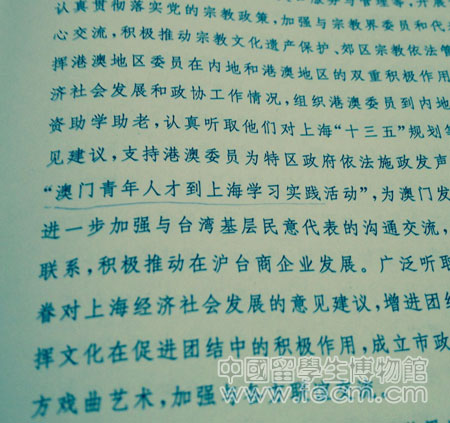 服务与管理等，开展
认真贯彻落实党的宗教政策，加强与宗教界委员和代
心交流，积极推动宗教文化遗产保护、郊区宗教依法管
挥港澳地区委员在内地和港澳地区的双重积极作用
济社会发展和政协工作情况，组织港澳委员到内地
资助学助老，认真听取他们对上海“十三五”规划等
见建议，支持港澳委员为特区政府依法施政发声
“澳门青年人才到上海学习实践活动”，为澳门发
进一步加强与台湾基层民意代表的沟通交流，
联系，积极推动在沪台商企业发展。广泛听取
眷对上海经济社会发展的意见建议，增进团结
挥文化在促进团结中的积极作用，成立市政
方戏曲艺术，加强
中國留學生博物館